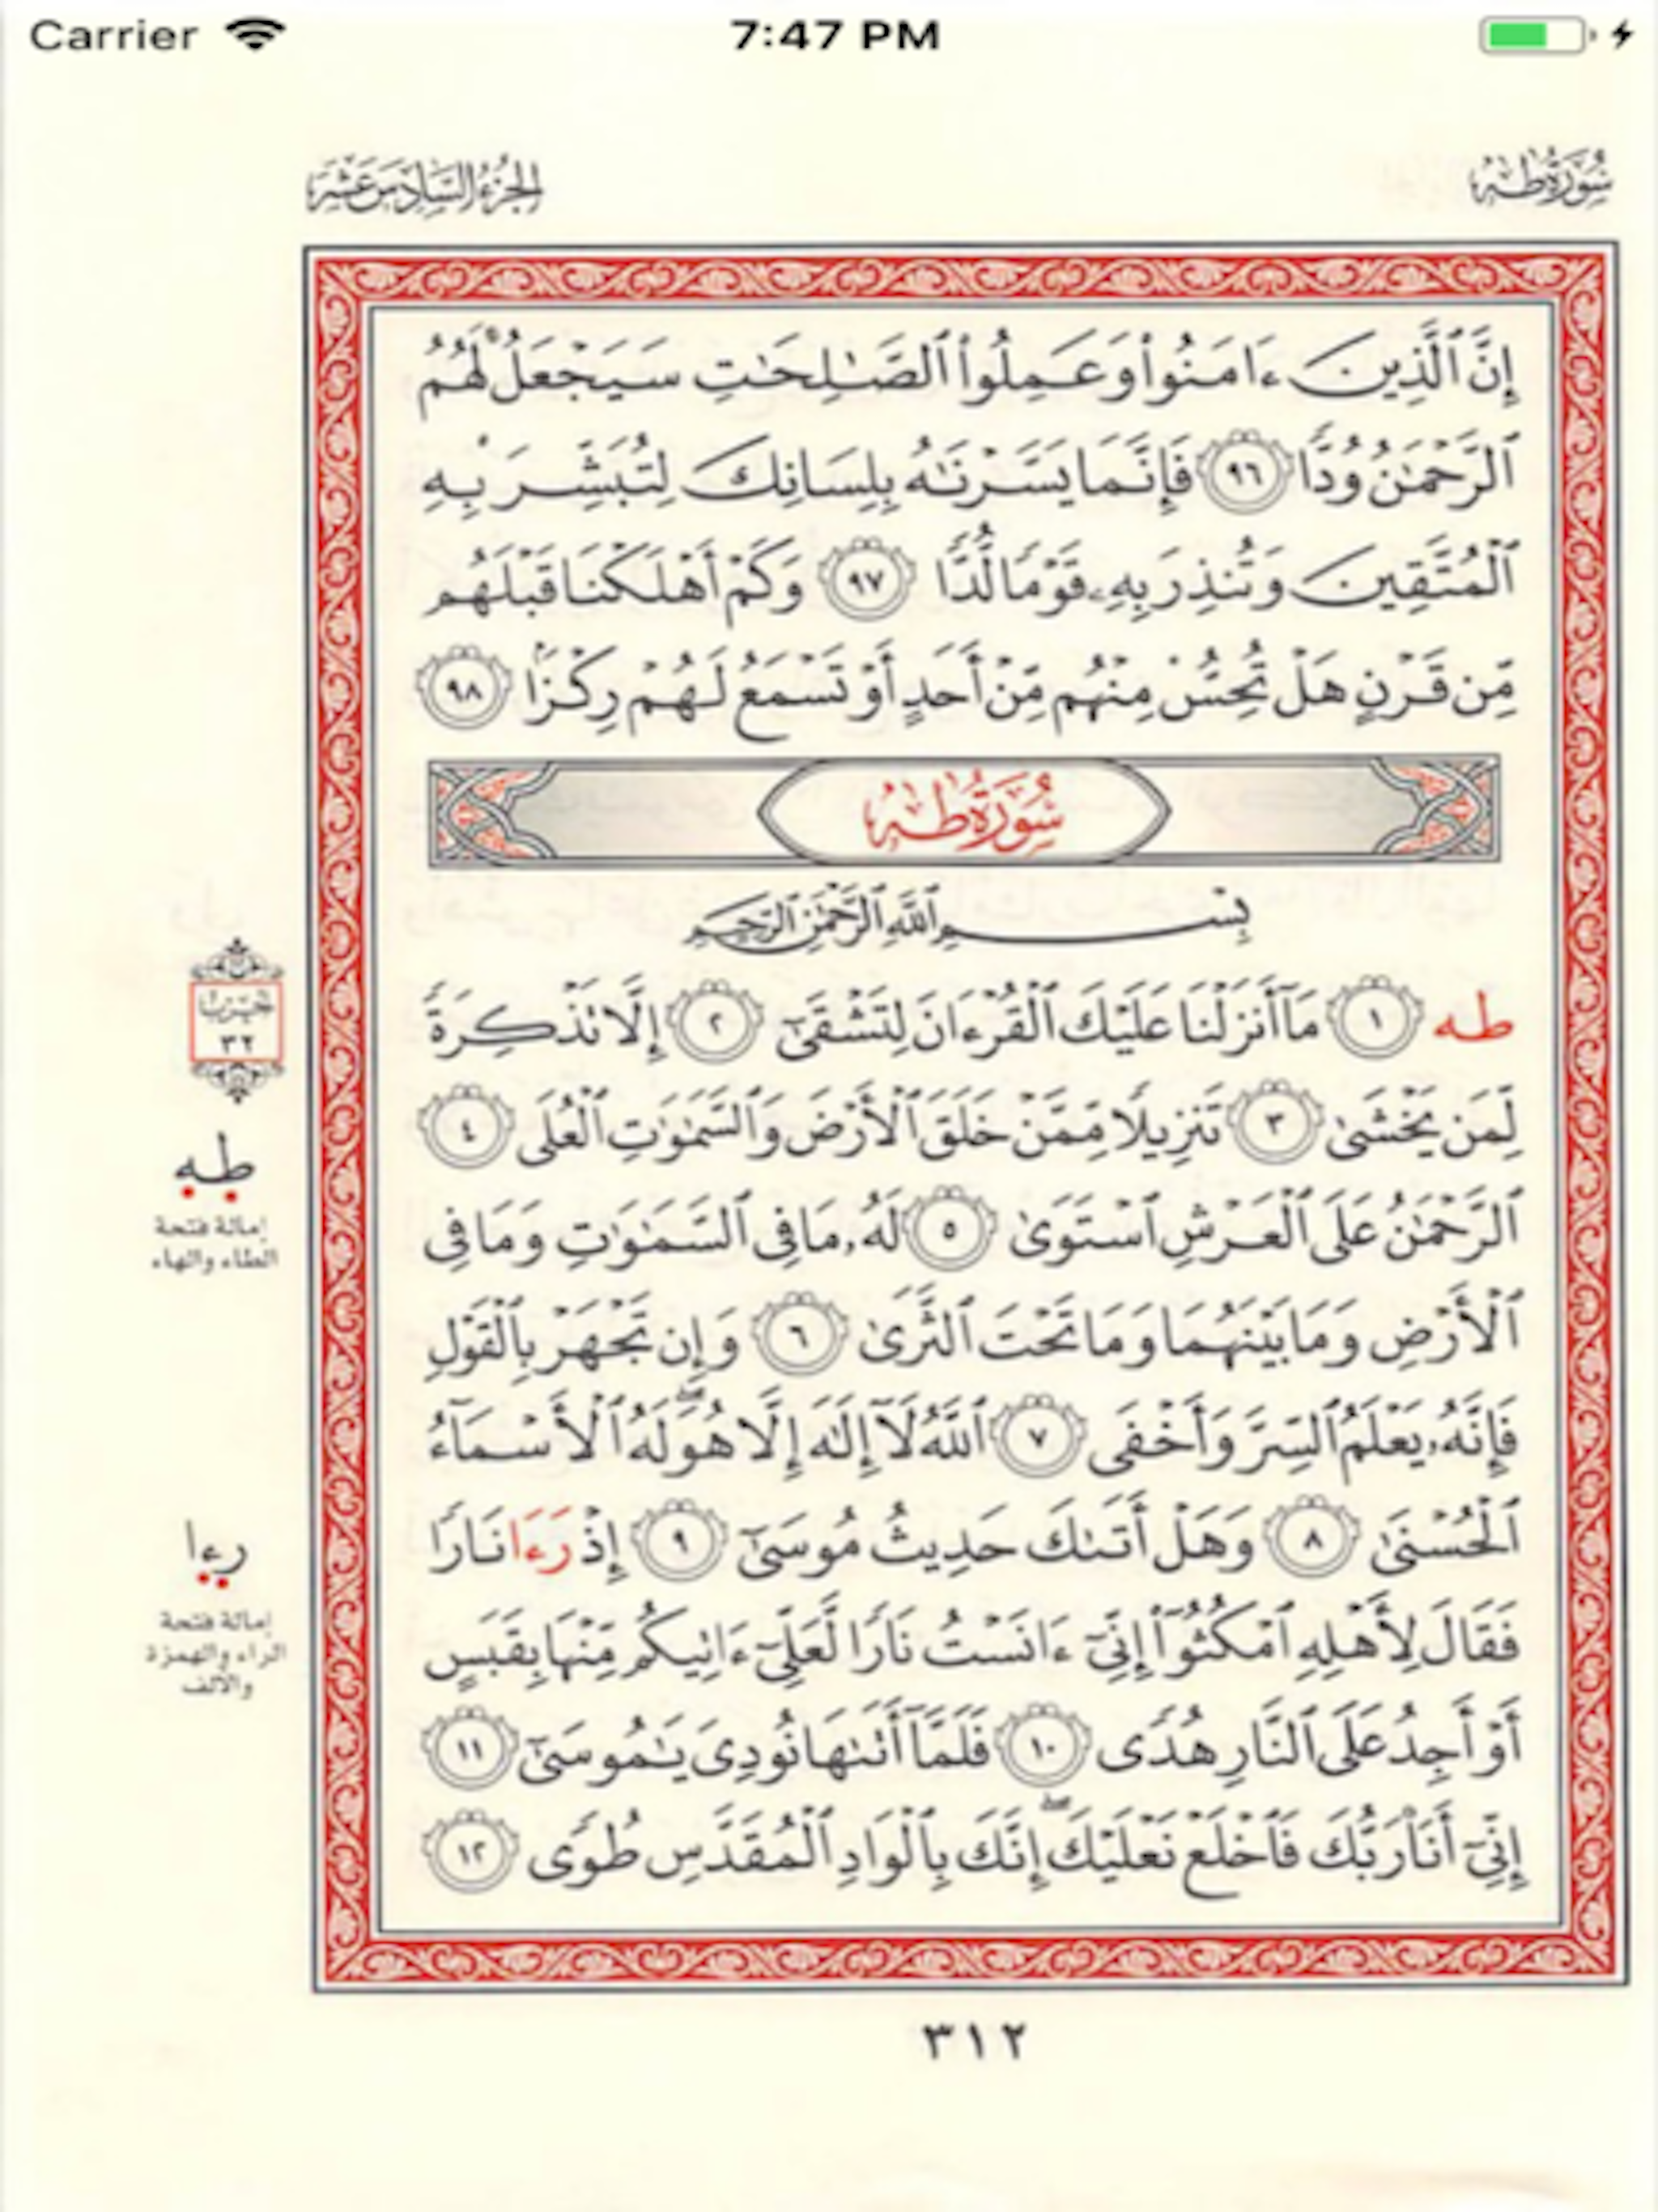 Carrier 7:47 PM
سُورَةُ طه الجُزْءُ السَّادِسَ عَشَرَ
إِنَّ ٱلَّذِينَ ءَامَنُوا۟ وَعَمِلُوا۟ ٱلصَّـٰلِحَـٰتِ سَيَجْعَلُ لَهُمُ
ٱلرَّحْمَـٰنُ وُدًّا ٩٦ فَإِنَّمَا يَسَّرْنَـٰهُ بِلِسَانِكَ لِتُبَشِّرَ بِهِ
ٱلْمُتَّقِينَ وَتُنذِرَ بِهِۦ قَوْمًا لُّدًّا ٩٧ وَكَمْ أَهْلَكْنَا قَبْلَهُم
مِّن قَرْنٍ هَلْ تُحِسُّ مِنْهُم مِّنْ أَحَدٍ أَوْ تَسْمَعُ لَهُمْ رِكْزًا ٩٨
سُورَةُ طه
بِسْمِ ٱللَّهِ ٱلرَّحْمَـٰنِ ٱلرَّحِيمِ
طه ١ مَآ أَنزَلْنَا عَلَيْكَ ٱلْقُرْءَانَ لِتَشْقَىٰٓ ٢ إِلَّا تَذْكِرَةً
لِّمَن يَخْشَىٰ ٣ تَنزِيلًا مِّمَّنْ خَلَقَ ٱلْأَرْضَ وَٱلسَّمَـٰوَٰتِ ٱلْعُلَى ٤
ٱلرَّحْمَـٰنُ عَلَى ٱلْعَرْشِ ٱسْتَوَىٰ ٥ لَهُۥ مَا فِى ٱلسَّمَـٰوَٰتِ وَمَا فِى
ٱلْأَرْضِ وَمَا بَيْنَهُمَا وَمَا تَحْتَ ٱلثَّرَىٰ ٦ وَإِن تَجْهَرْ بِٱلْقَوْلِ
فَإِنَّهُۥ يَعْلَمُ ٱلسِّرَّ وَأَخْفَى ٧ ٱللَّهُ لَآ إِلَـٰهَ إِلَّا هُوَ ۖ لَهُ ٱلْأَسْمَآءُ
ٱلْحُسْنَىٰ ٨ وَهَلْ أَتَىٰكَ حَدِيثُ مُوسَىٰٓ ٩ إِذْ رَءَا نَارًا
فَقَالَ لِأَهْلِهِ ٱمْكُثُوٓا۟ إِنِّىٓ ءَانَسْتُ نَارًا لَّعَلِّىٓ ءَاتِيكُم مِّنْهَا بِقَبَسٍ
أَوْ أَجِدُ عَلَى ٱلنَّارِ هُدًى ١٠ فَلَمَّآ أَتَىٰهَا نُودِىَ يَـٰمُوسَىٰٓ ١١
إِنِّىٓ أَنَا۠ رَبُّكَ فَٱخْلَعْ نَعْلَيْكَ ۖ إِنَّكَ بِٱلْوَادِ ٱلْمُقَدَّسِ طُوًى ١٢
حِزْب
٣٢
طه
إمالة فتحة
الطاء والهاء
رءا
إمالة فتحة
الراء والهمزة
والألف
٣١٢